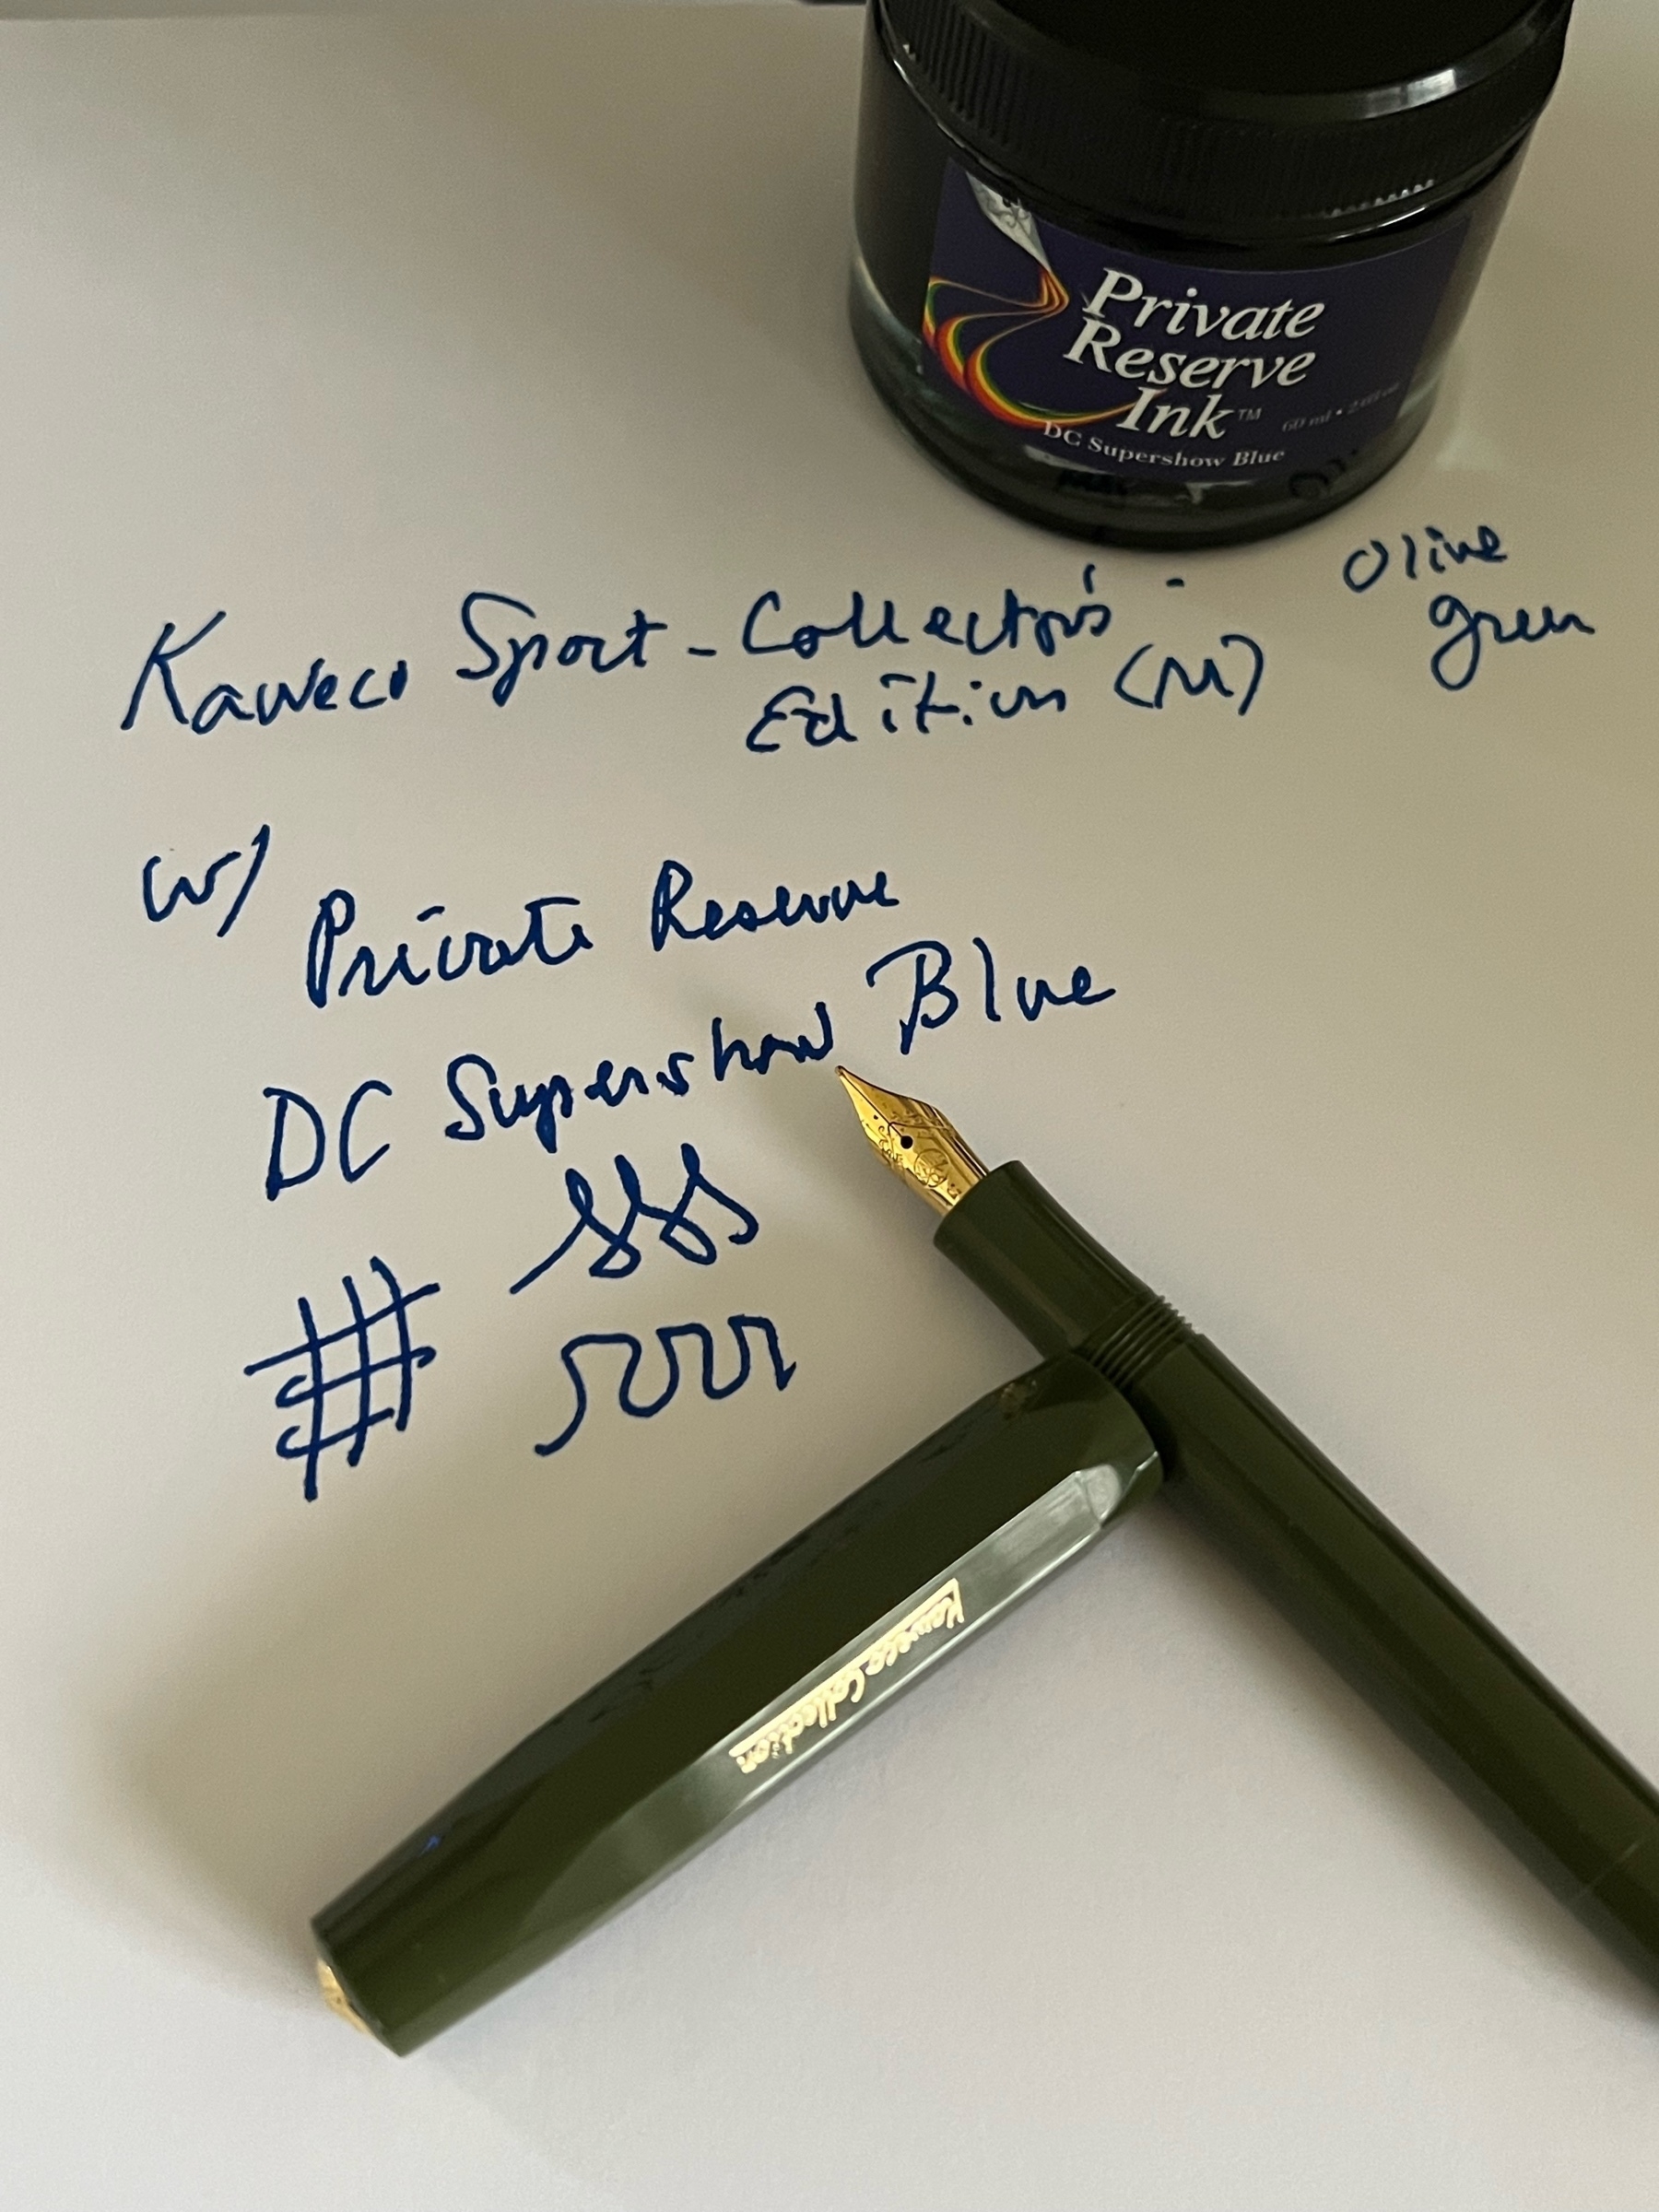 Private
Reserve
Ink™ 60 ml • 2
DC Supershow Blue
Olive
green
Kaweco Sport - Collector's -
Edition (M)
w/
Private Reserve
DC Supershow Blue
Kaweco Collection